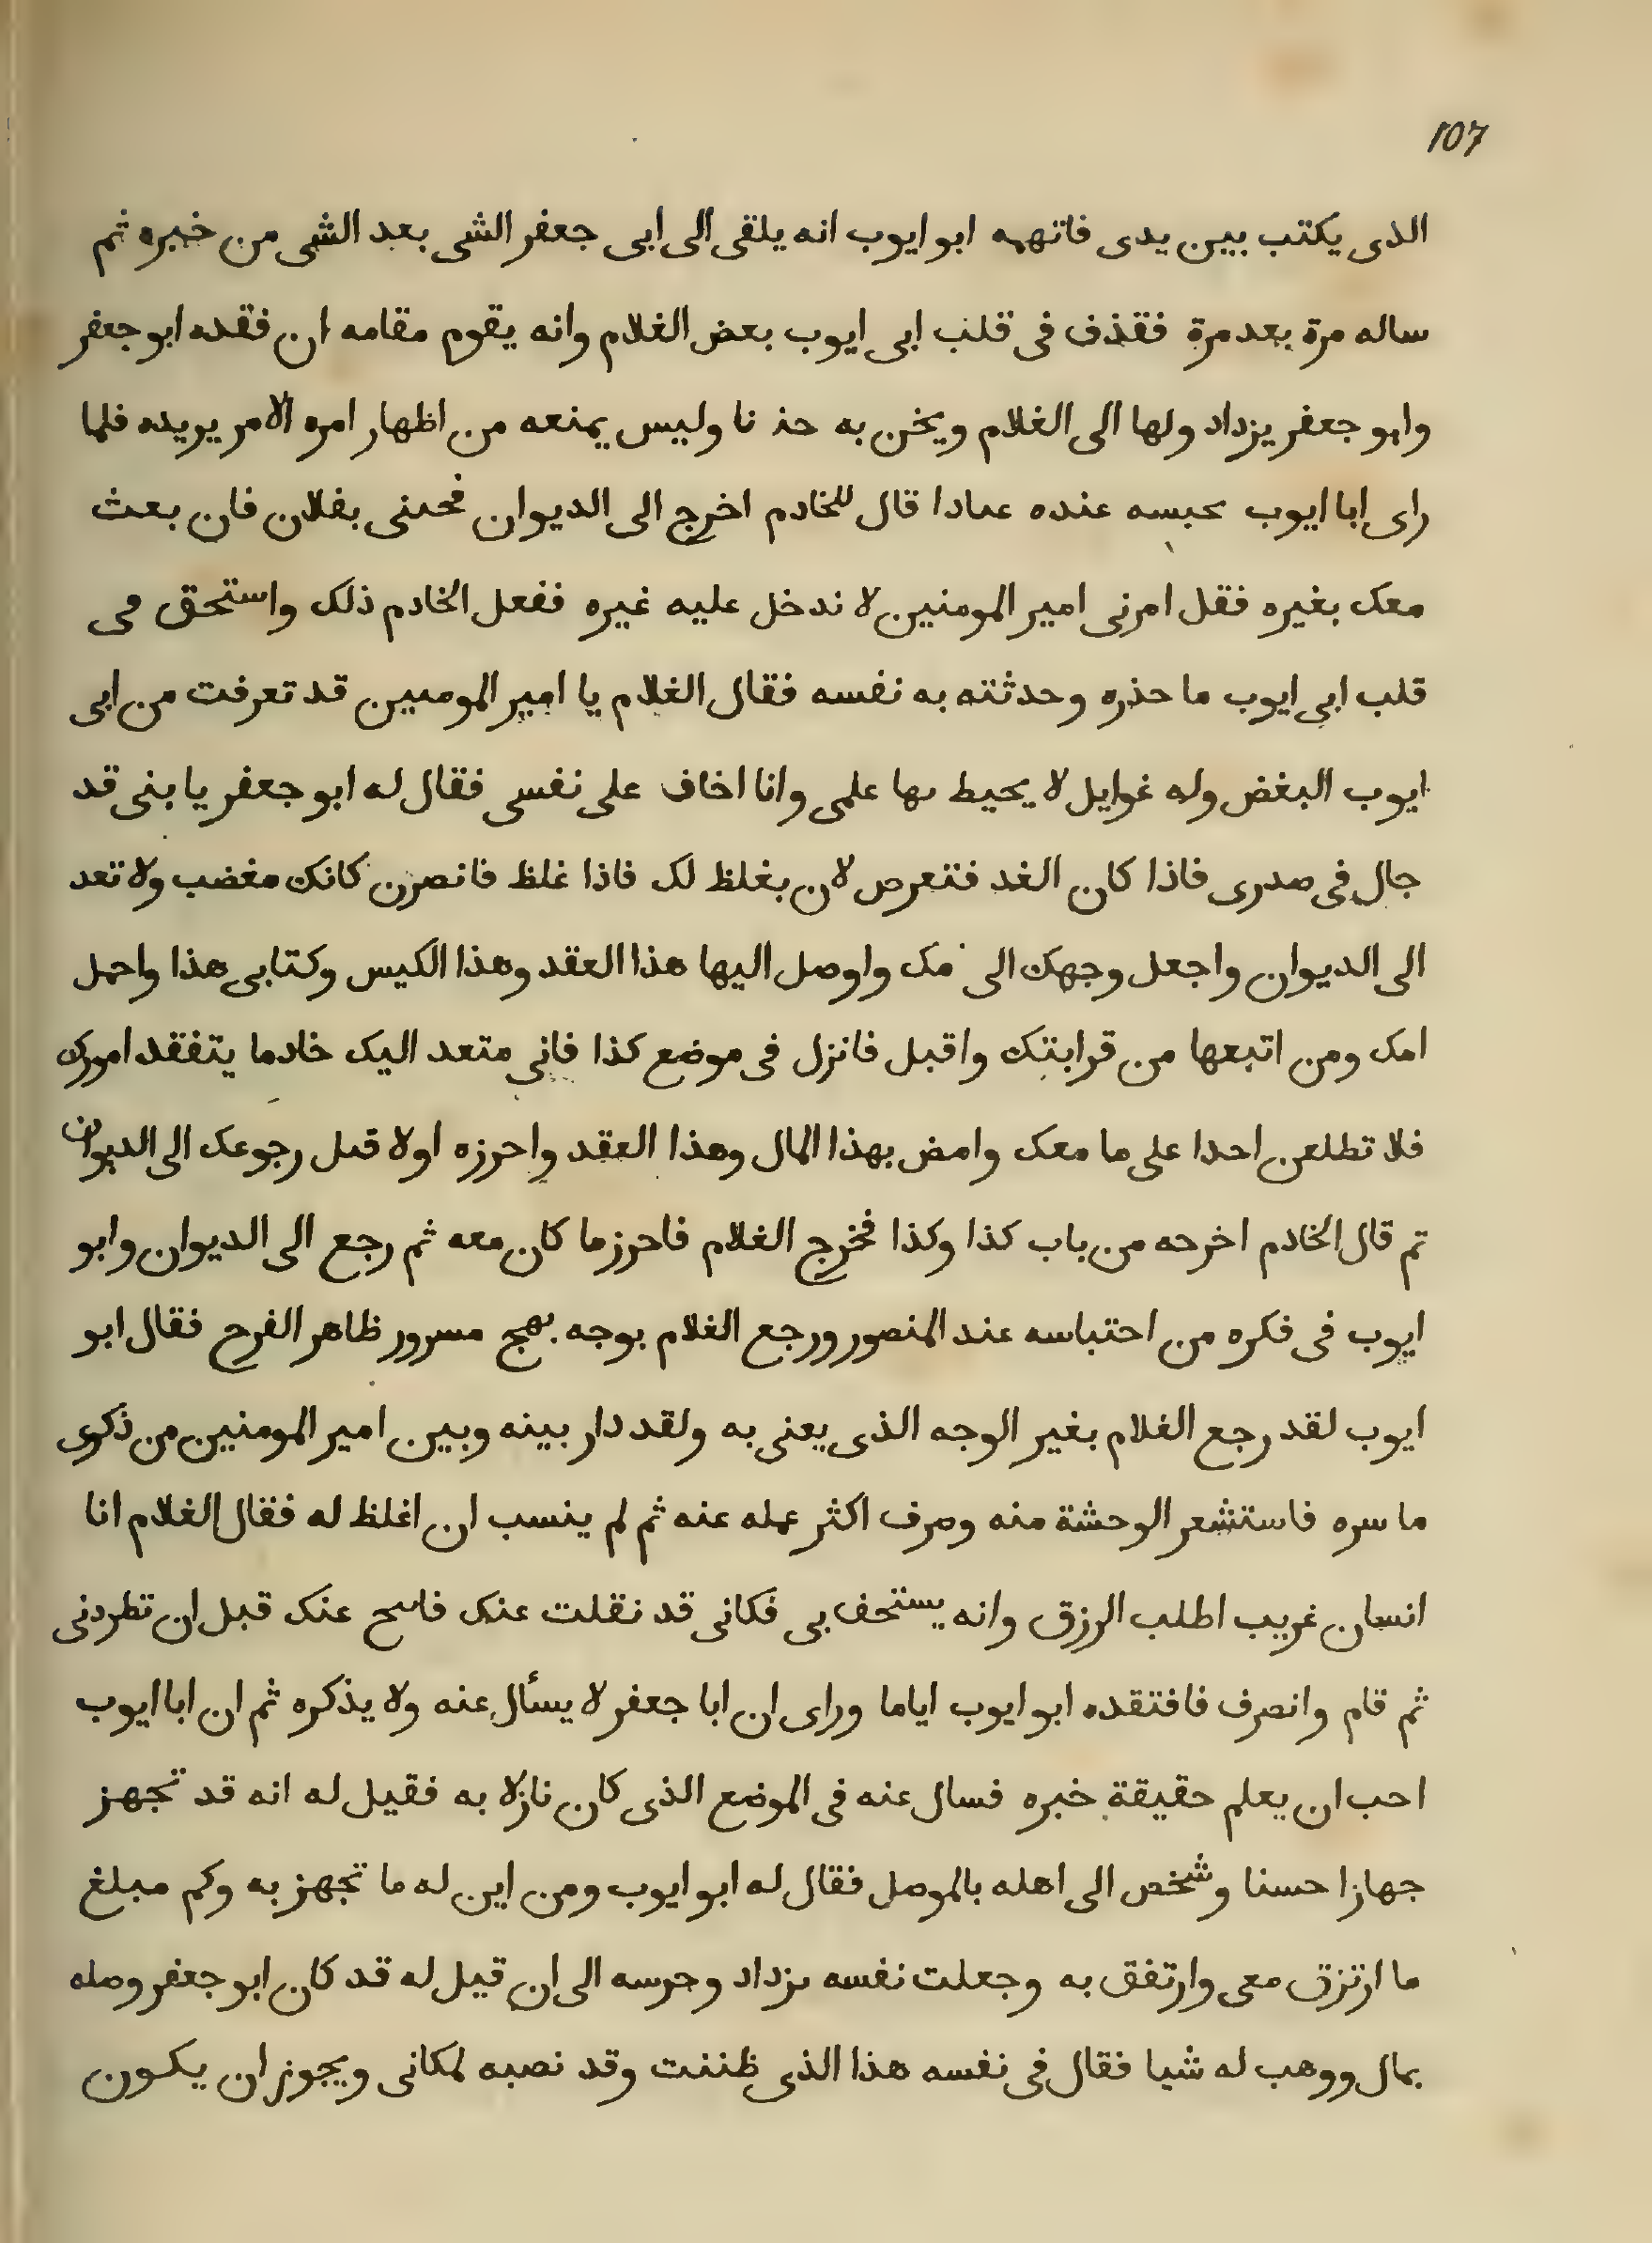 107
الذى يكتب بين يدى فاتهمه ابو ايوب انه يلقى الى ابى جعفر الشى بعد الشى من خبره ثم
ساله مرة بعد مرة فقذف فى قلب ابى ايوب بعض الغلام وانه يقوم مقامه ان فقده ابو جعفر
وابو جعفر يزداد ولها الى الغلام ويخن به حذ نا وليس يمنعه من اظهار امره الا مر يريده فلما
راى ابا ايوب بحبسه عنده عىادا قال للخادم اخرج الى الديوان فحىنى بفلان فان بعث
معك بغيره فقل امرنى امير المومنين لا ندخل عليه غيره ففعل الخادم ذلك واستحق فى
قلب ابى ايوب ما حذره وحدثته به نفسه فقال الغلام يا امير المومىين قد تعرفت من ابى
ايوب البغض وله غوايل لا يحيط بها علمى وانا اخاف على نفسى فقال له ابو جعفر يا بنى قد
جال فى صدرى فاذا كان الغد فتعرص لان بغلظ لك فاذا غلظ فانصرن كانك مغضب ولا تعد
الى الديوان واجعل وجهك الى مك واوصل اليها هذا العقد وهذا الكيس وكتابى هذا واحمل
امك ومن اتبعها من قرابتك واقبل فانزل فى موضع كذا فانى متعد اليك خادما يتفقد امورك
فلا تطلعن احدا على ما معك وامض بهذا المال وهذا العقد واحرزه اولا قىل رجوعك الى الديوان
تم قال الخادم اخرحه من باب كذا وكذا فخرج الغلام فاحرز ما كان معه ثم رجع الى الديوان وابو
ايوب فى فكره من احتباسه عند المنصور ورجع الغلام بوجه بهج مسرور ظاهر الفرح فقال ابو
ايوب لقد رجع الغلام بغير الوجه الذى يعنى به ولقد دار بينه وبين امير المومنين من ذكرى
ما سره فاستشعر الوحشة منه وصرف اكثر عمله عنه ثم لم ينسب ان اغلظ له فقال الغلام انا
انسان غريب اطلب الرزق وانه يستحف بى فكانى قد نقلت عنك فاسح عنك قبل ان تطردنى
ثم قام وانصرف فافتقده ابو ايوب اياما وراى ان ابا جعفر لا يسأل عنه ولا يذكره ثم ان ابا ايوب
احب ان يعلم حقيقة خبره فسال عنه فى الموضع الذى كان نازلا به فقيل له انه قد تجهز
جهازا حسنا وشخص الى اهله بالموصل فقال له ابو ايوب ومن اين له ما تجهز به وكم مبلغ
ما ارتزق معى وارتفق به وجعلت نفسه ىزداد وحرسه الى ان قيل له قد كان ابو جعفر وصله
بمال ووهب له شيا فقال فى نفسه هذا الذى ظننت وقد نصبه لمكانى ويجوز ان يكون